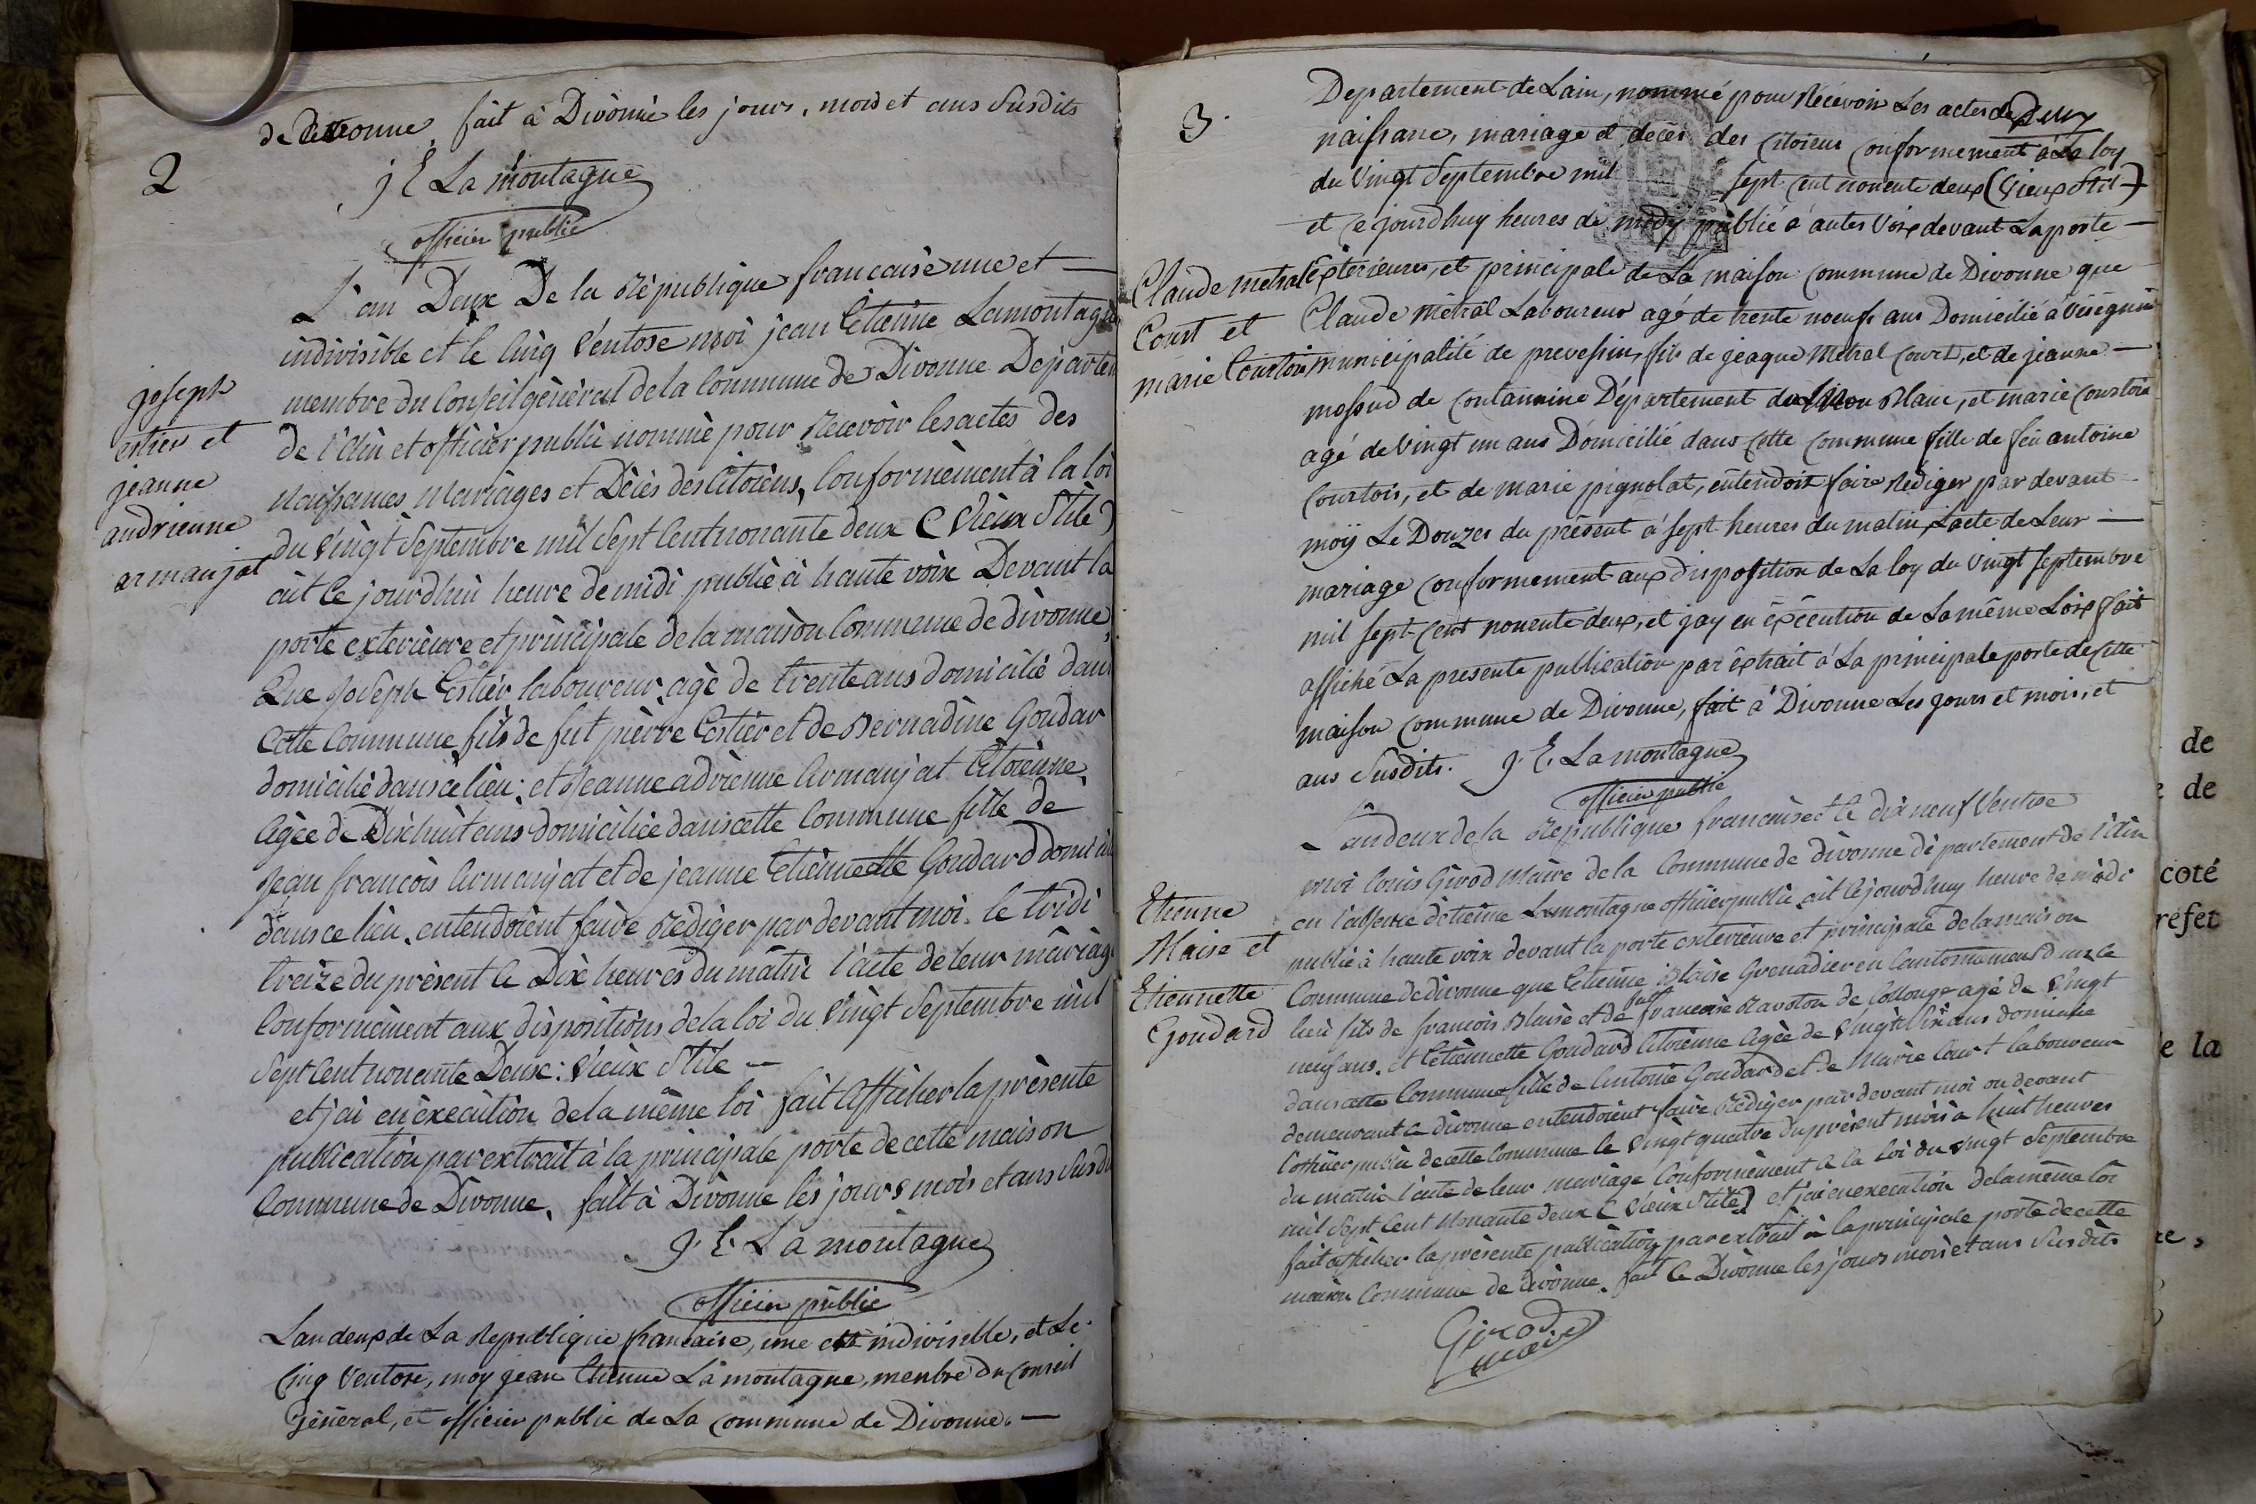 2
de Divonne, fait à Divonne les jours, mois et ans susdits
J E La montagne
officier public
joseph
estier et
jeanne
andrienne
armanjat
L'an Deux De la République francaise une et
indivisible et le Cinq Ventose moi jean Etienne Lamontagne
membre du Conseil général de la Commune de Divonne Departem
de l'Ain et officier public nommé pour Recevoir les actes des
Naissances Mariages et Décès des Citoiens, Conformèment à la loi
du vingt Septembre mil Sept Cent nonante deux ( Vieux Stile )
ait Ce jourdhui heure de midi publié à haute voix Devant la
porte exterieure et principale de la maison Commune de divonne,
Que Joseph Estier laboureur agé de trente ans domicilié dans
Cette Commune fils de fut pierre Estier et de Bernadine Goudar
domicilié dans ce lieu; et Jeanne adrienne Armanjat Citoienne
agée de Dixhuit ans domiciliée dans cette Commune fille de
Jean francois Armanjat et de jeanne Etiennette Goudard domicili
dans ce lieu, entendoient faire Rédiger par devant moi le tridi
treize du présent à Dix heures du matin l'acte de leur mâriage
Conformèment aux dispositions de la loi du Vingt Septembre mil
Sept Cent nonante Deux: Vieux Stile —
et j'ai en éxecution de la même loi fait Afficher la présente
publication par extrait à la principale porte de cette maison
Commune de Divonne, fait à Divonne les jours mois et ans Susdi
J. E. La montagne
officier public
Lan deux de La Republique francaise, une et indivisible, et Le
Cinq Ventose, moy jean Etienne La montagne, menbre du Conseil
Général, et officier public de La commune de Divonne. —
3.
Departement de Lain, nommé pour Récevoir Les actes de
naissance, mariage et deces des citoiens conformement à La loy
du vingt Septembre mil sept cent nonente deux (Vieux Stil)
et ce jourdhuy heures de midy publié a autes Voix devant La porte —
Claude metral
Court et
marie Courtois
Exterieures, et principale de La maison commune de Divonne que
Claude Métral Laboureur agé de trente noeuf ans Domicilié à Vésegnin
municipalité de prevessin, fils de jeaque Metral Court, et de jeanne —
mossud de contamine Département du Mon Blanc, et marie Courtois
agé de Vingt un ans Domicilié dans cette commune fille de feu antoine
Courtois, et de marie pignolat, entendoit faire Rédiger par devant
moy Le Douzes du présent à sept heures du matin, Lacte de Leur —
mariage conformement aux disposition de La loy du Vingt septembre
mil sept cent nonente deux, et jay en éxécution de La même Loix fait
affiché La presente publication par Extrait à La principale porte de cette
maison commune de Divonne, fait à Divonne Les jours et mois, et
ans susdits. J. E. La montagne
officier public
Etienne
Blaise et
Etiennette
Goudard
L'an deux de la Republique francaise et le dix neuf Ventose
moi louis Girod Maire de la Commune de divonne département de l'Ain
en l'absence d'etienne Lamontagne officier public ait ce jourdhuy heure de midi
publié à haute voix devant la porte exterieure et principale de la maison
Commune de divonne que Etienne Blaise Grenadier en Cantonnement dans ce
lieu fils de francois Blaise et de francoise Ravoton de Collonge agé de vingt
neuf ans, et Etiennette Goudard Citoienne Agée de vingt ans domicilié
dans cette Commune fille de Antoine Goudard et de Marie Court laboureur
demeurant à divonne entendoient faire Rédiger par devant moi ou devant
l'officier public de cette Commune le vingt quatre du présent mois à huit heures
du matin l'acte de leur mariage Conformèment à la loi du vingt Septembre
mil Sept Cent Nonante deux ( Vieux Stile) et j'ai en execution de la même loi
fait afficher la présente publication par extrait à la principale porte de cette
maison Commune de divonne, fait à Divonne les jours mois et ans Susdits
Girod
maire
de
de
coté
refet
e la